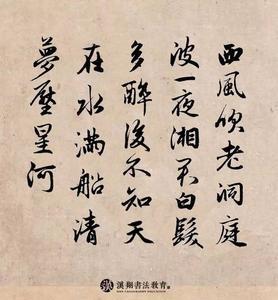 西風吹老洞庭
波一夜湘君白髮
多醉後不知天
在水滿船清
夢壓星河
漢翔書法教育
HXS CALLIGRAPHY EDUCATION